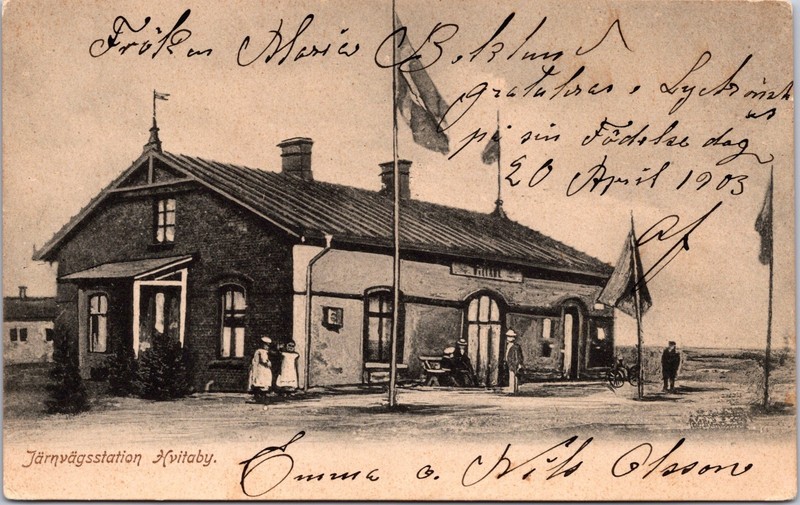 Fröken Maria Boklund
gratuleras o Lyckönsk
as
på sin Födelse dag
20 April 1903
af
Järnvägsstation Hvitaby.
Emma o. Nils Olsson